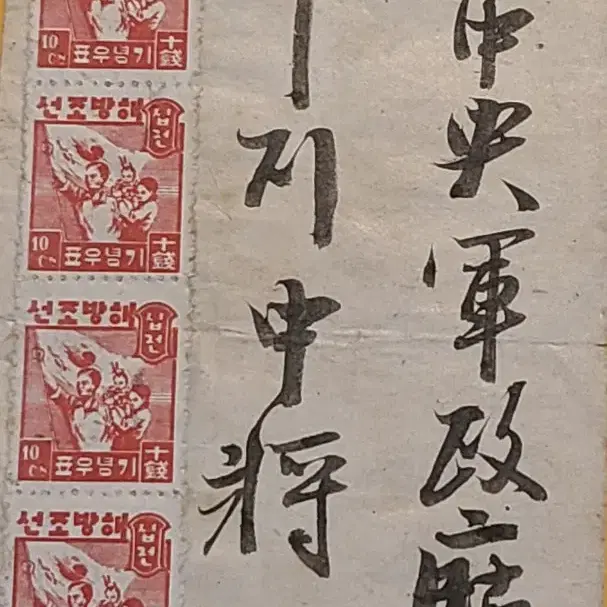 中央軍政
지中將
10 CN
기념우표
十錢
해방조선
십전
10 CN
기념우표
十錢
해방조선
십전
10 CN
기념우표
十錢
해방조선
십전